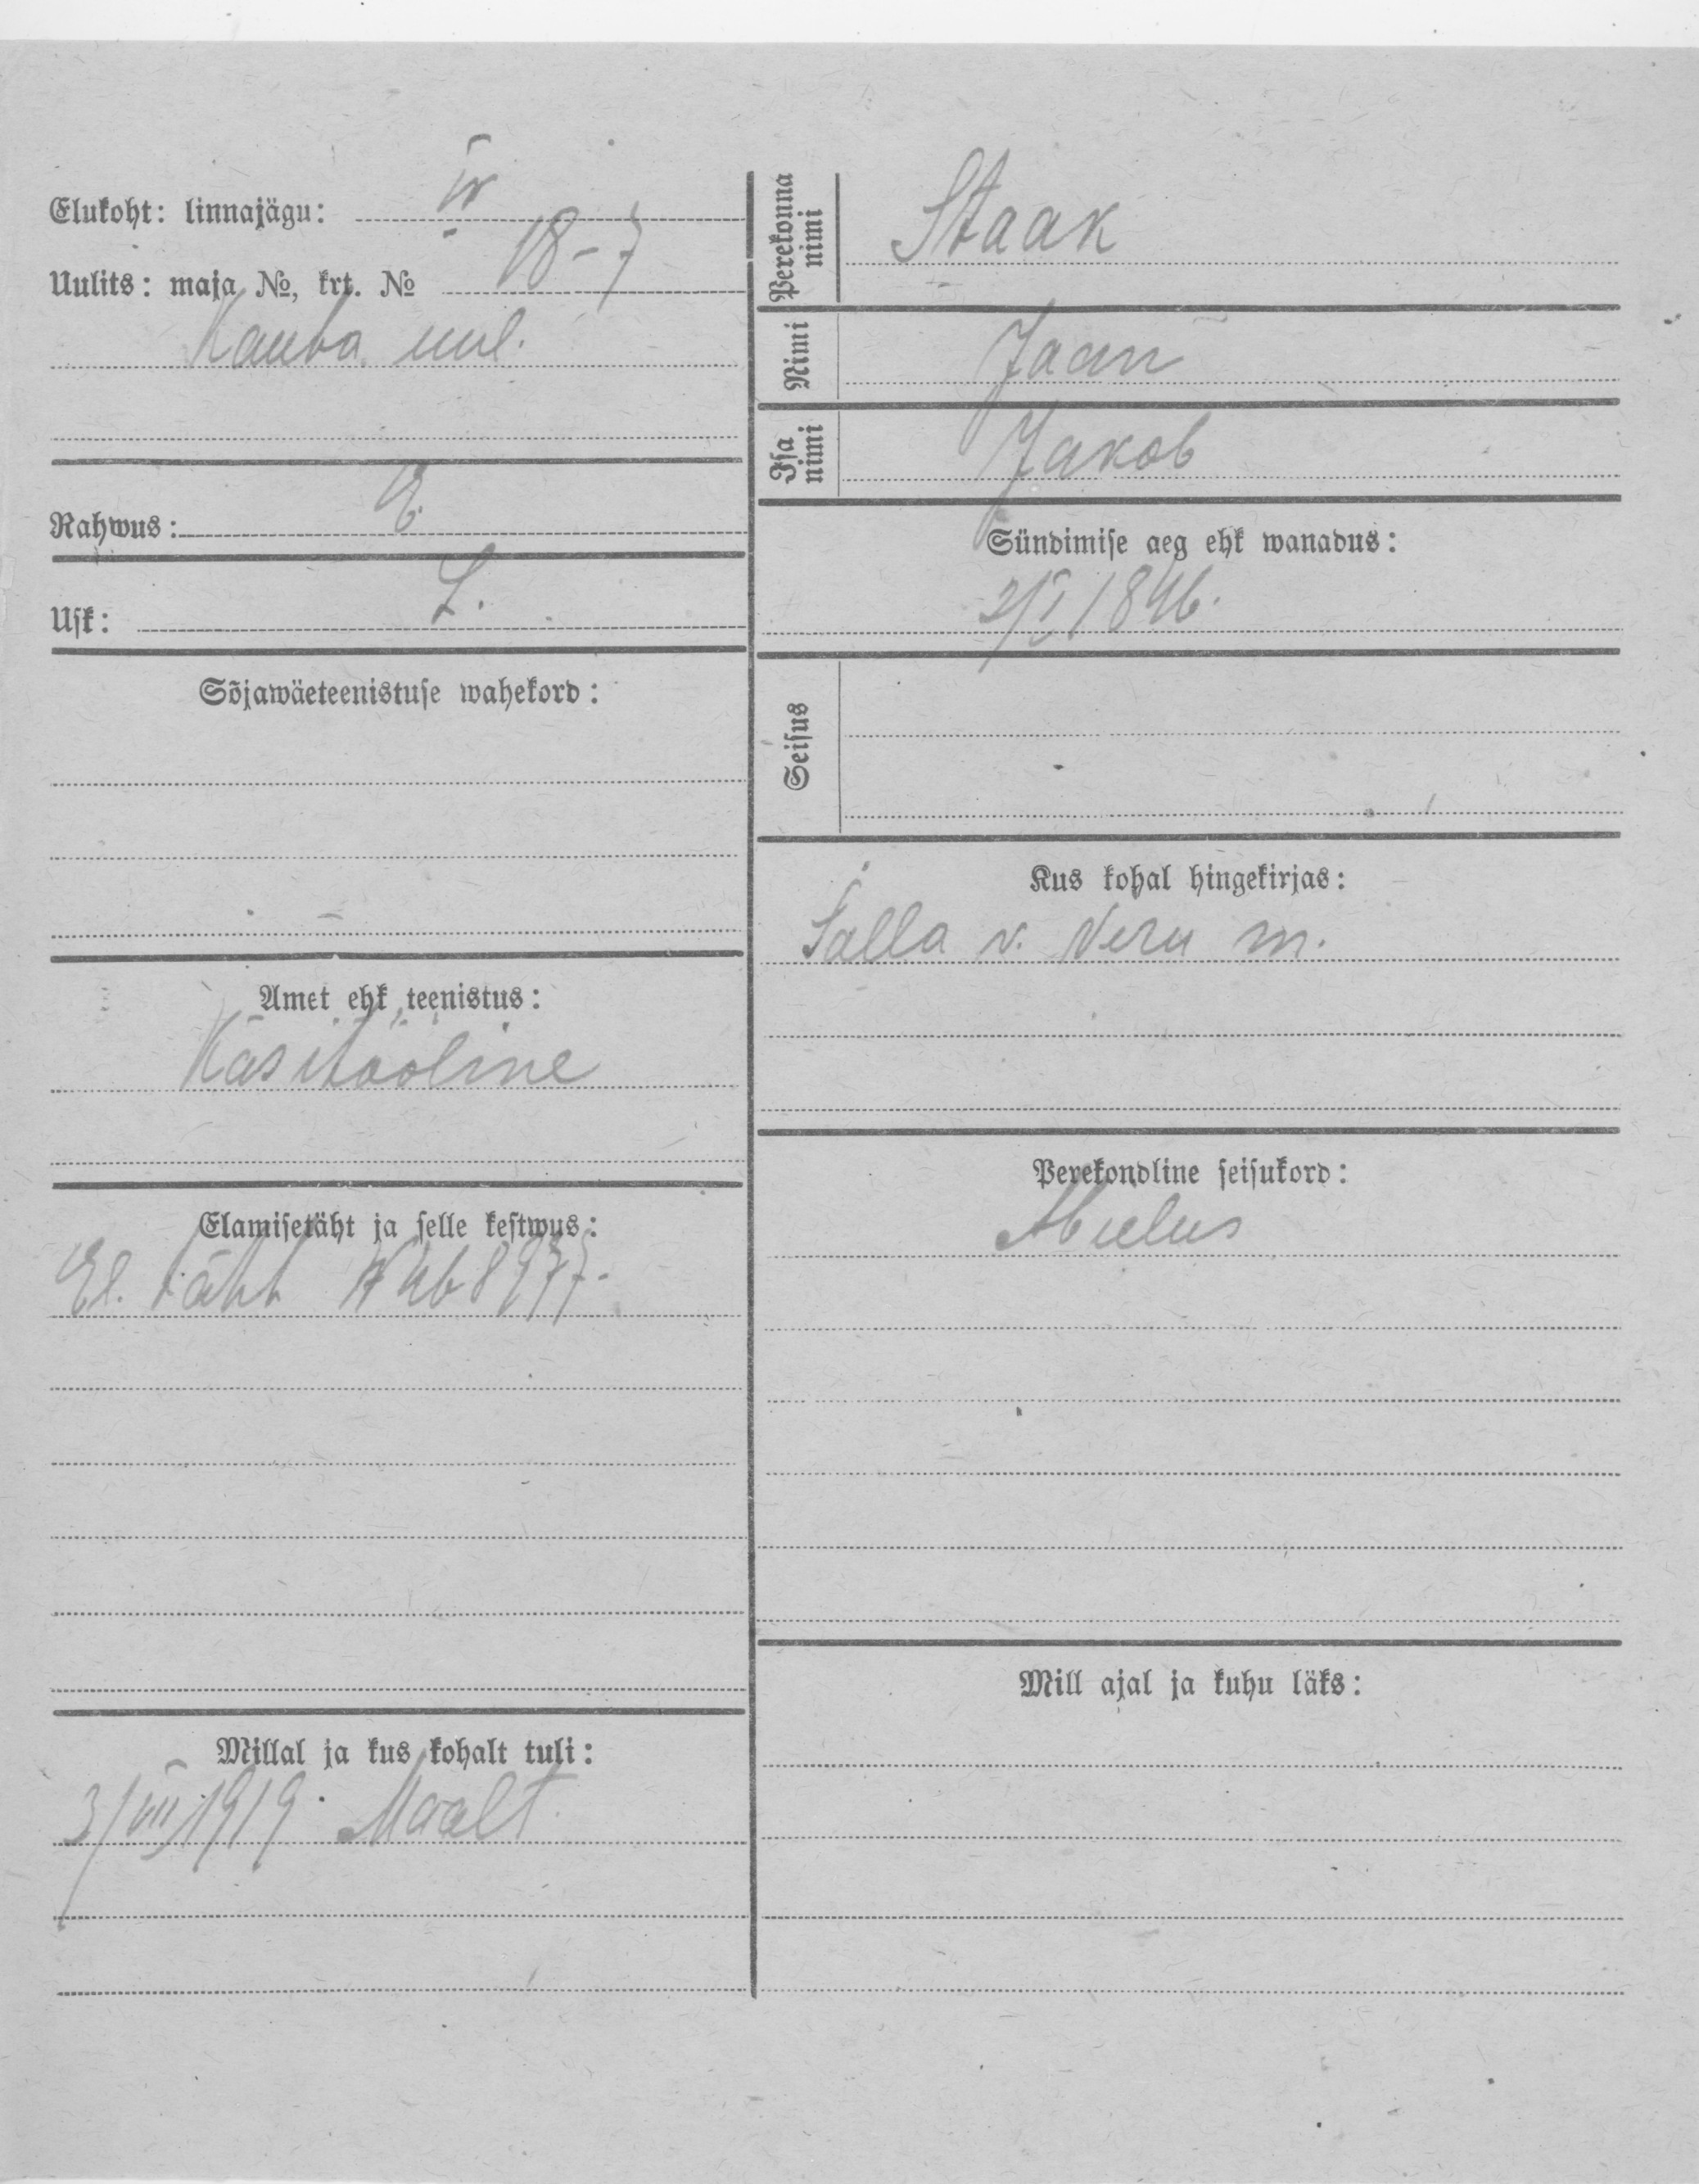 Elukoht: linnajägu: IV
Uulits: maja №, krt. № 18-7
Kauba uul.
Rahwus: E.
Usk: L.
Sõjawäeteenistuse wahekord:
Amet ehk teenistus:
Käsitööline
Elamisetäht ja selle kestwus:
El. täht № 468977.
Millal ja kus kohalt tuli:
3/VII 1919. Maalt.
Perekonna nimi Staak
Nimi Jaan
Isa nimi Jakob
Sündimise aeg ehk wanadus:
2/I 1846.
Seisus
Kus kohal hingekirjas:
Salla v. Veru m.
Perekondline seisukord:
Abielus
Mill ajal ja kuhu läks: